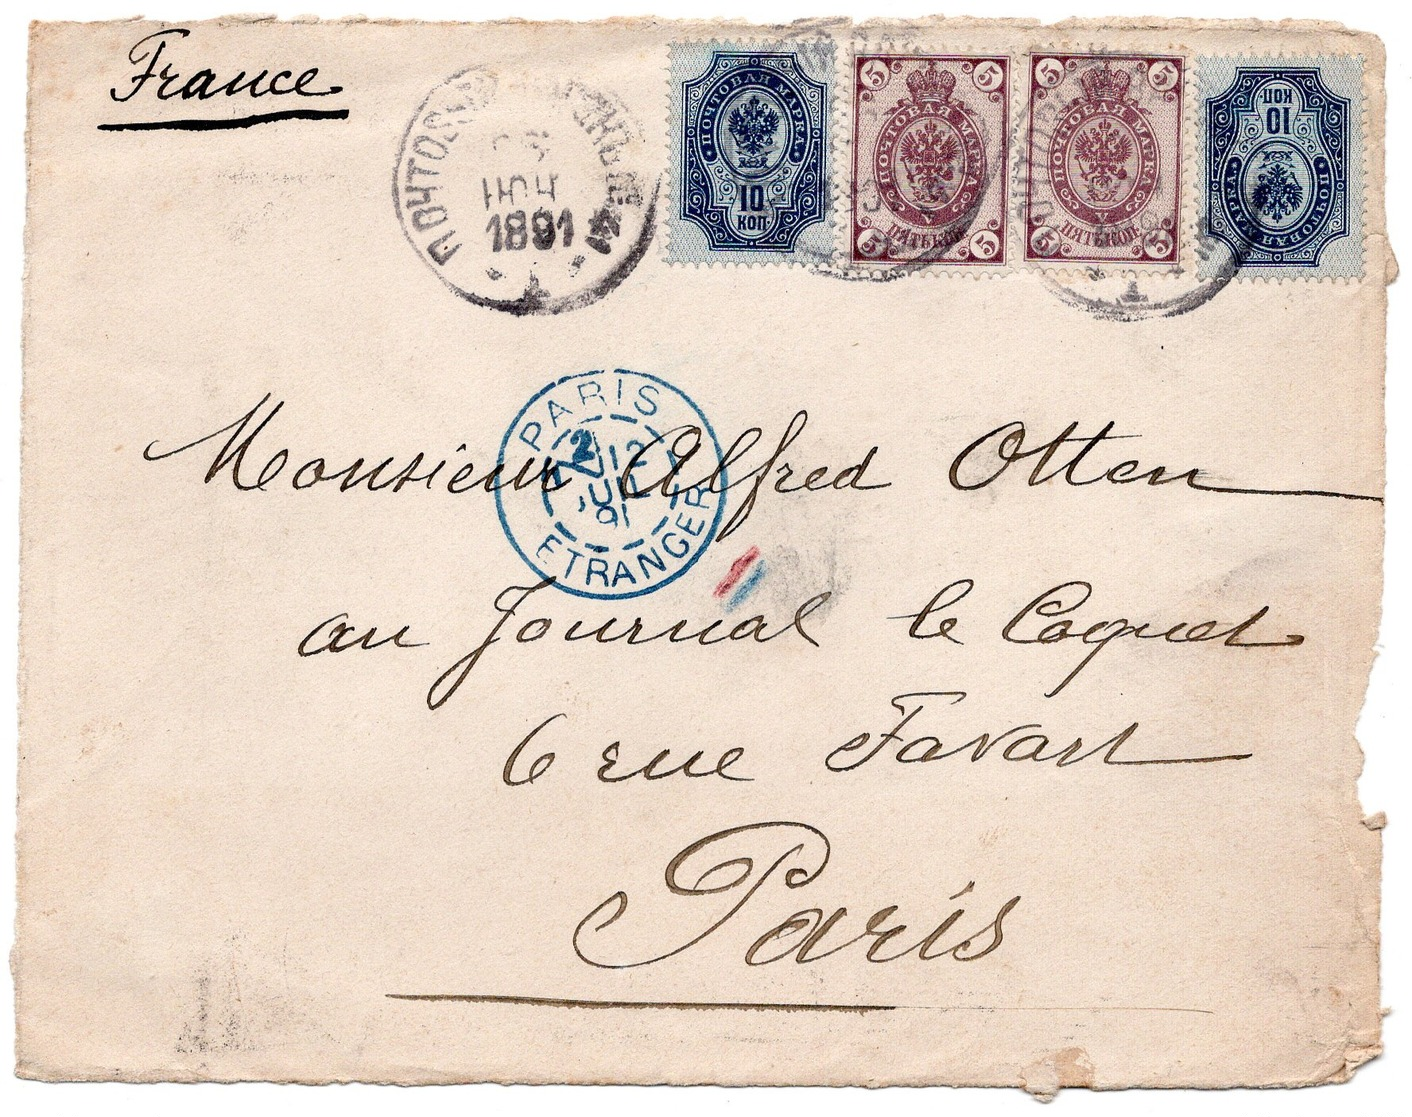 France
ПОЧТОВЫЙ ВАГОНЪ
ІЮН
1891
ПОЧТОВАЯ МАРКА
10
КОП
5 5
ПОЧТОВАЯ МАРКА
V
ПЯТЬ КОП.
5 5
5 5
ПОЧТОВАЯ МАРКА
V
ПЯТЬ КОП.
5 5
ПОЧТОВАЯ МАРКА
10
КОП
PARIS
2
12
JUIL
91
ETRANGER
Monsieur Alfred Otten
au Journal le Coquet
6 rue Favart
Paris